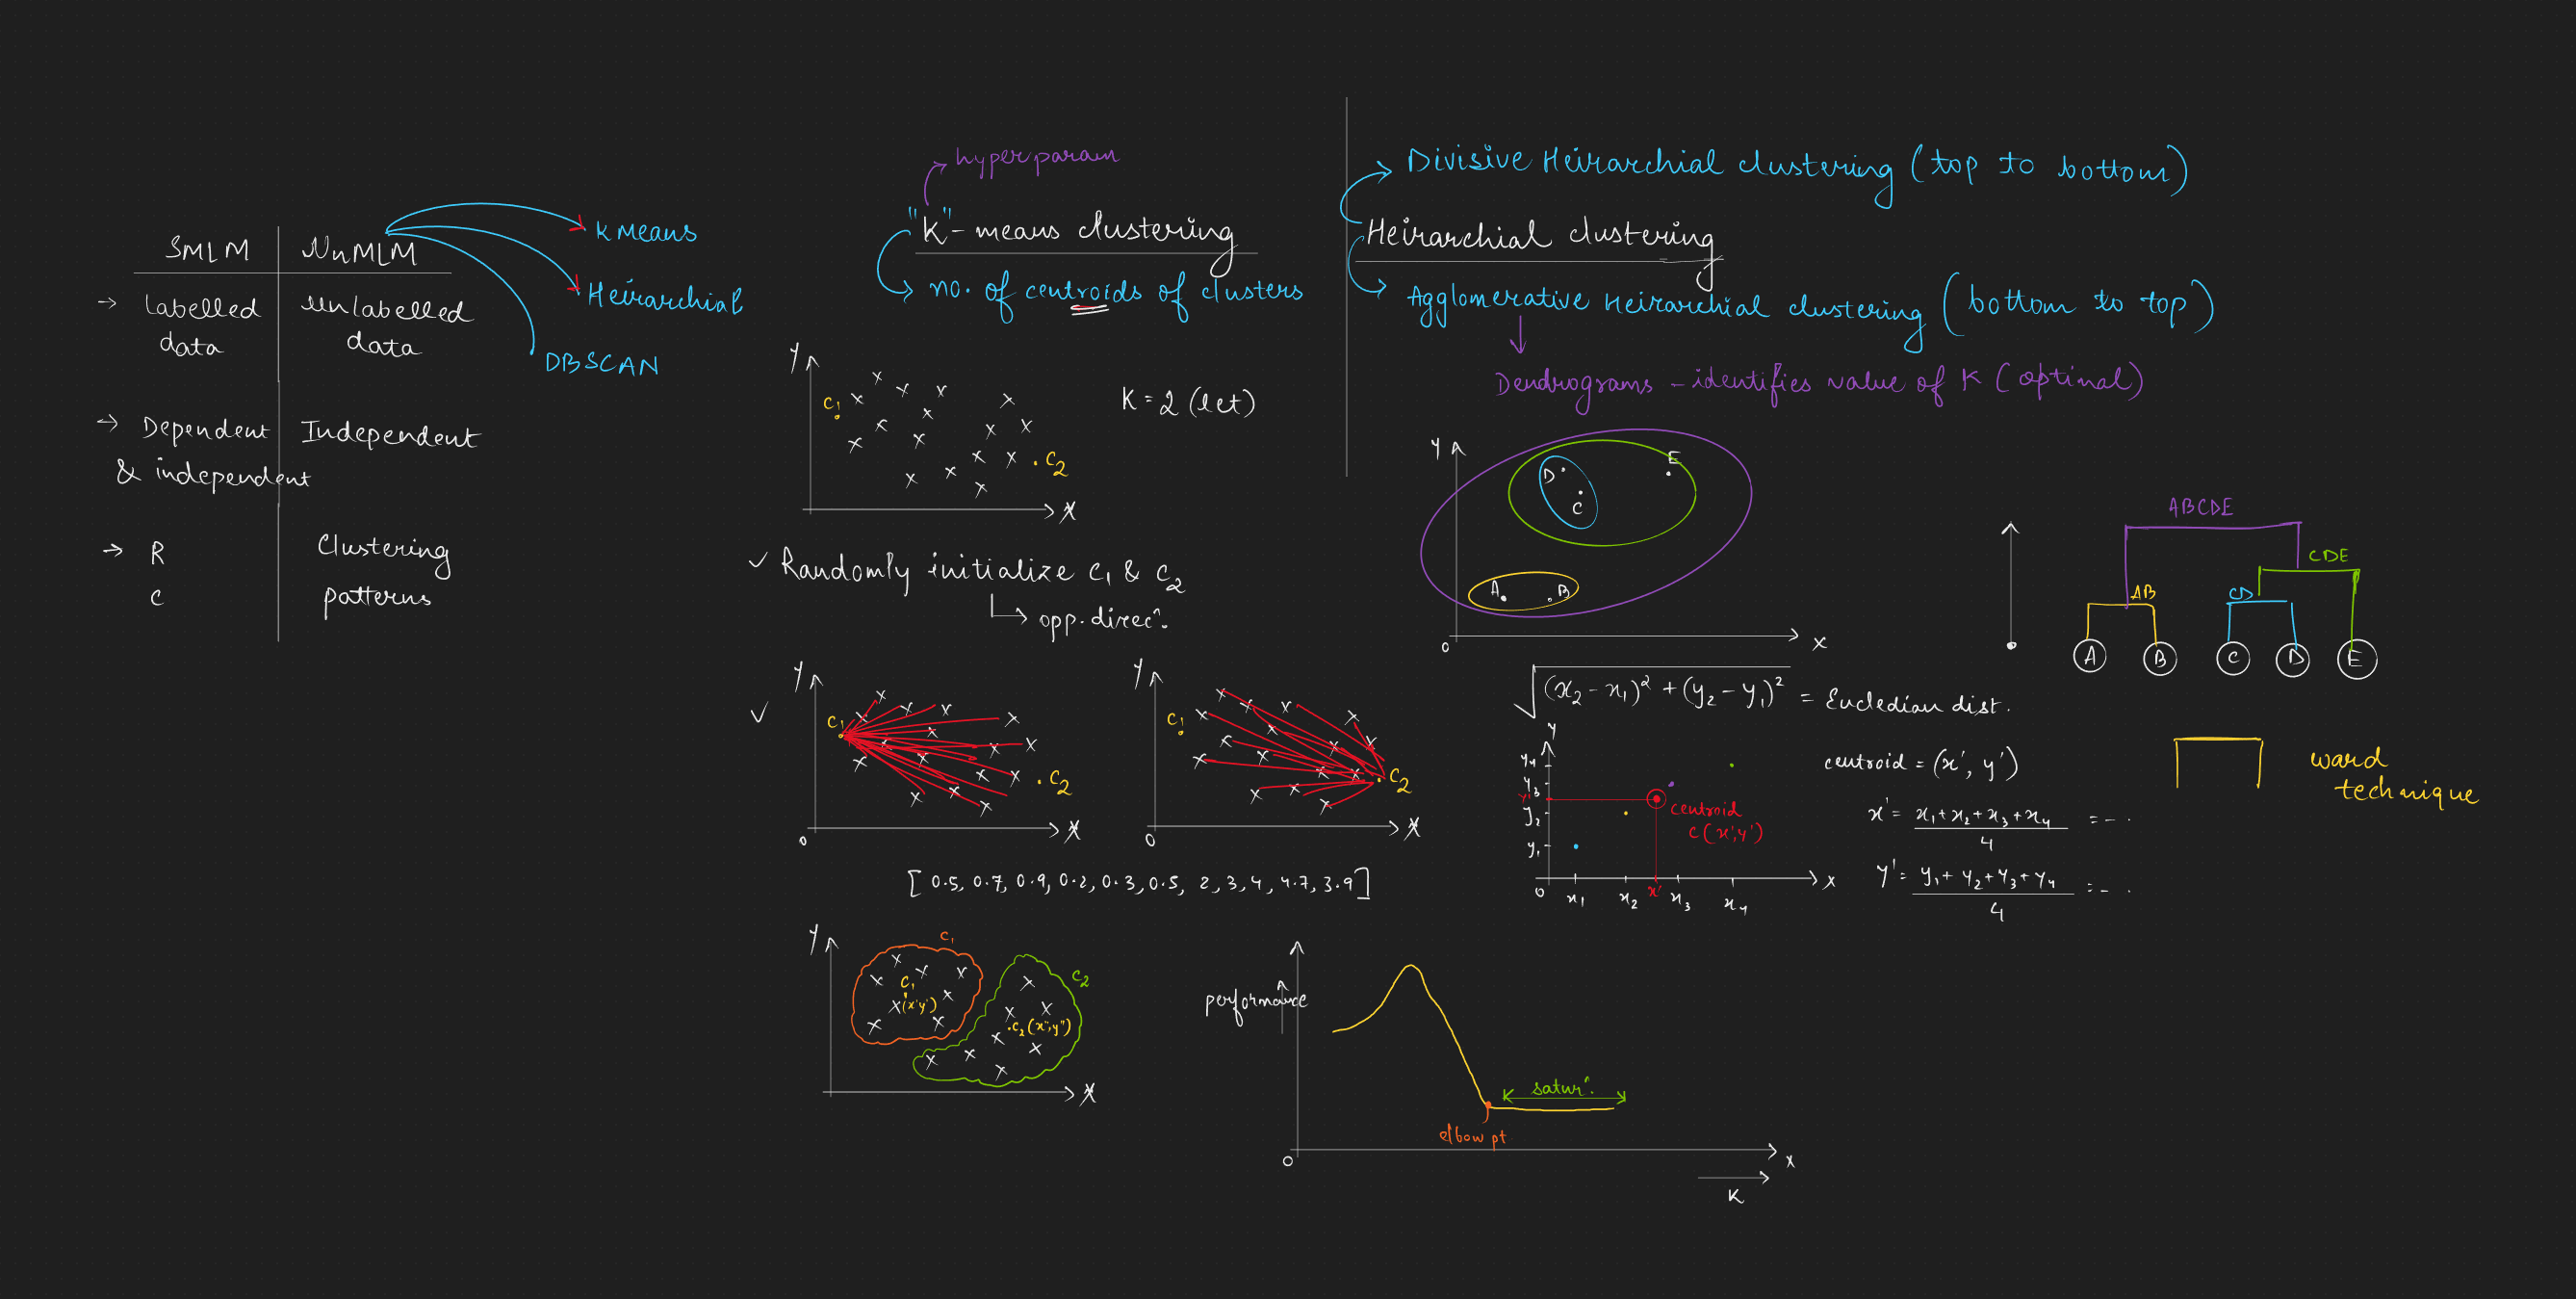 SMLM
UnMLM
→ labelled data
unlabelled data
→ Dependent & independent
Independent
→ R
C
Clustering
patterns
K Means
Heirarchial
DBSCAN
hyperparam
"K"- means clustering
no. of centroids of clusters
Y
C1
C2
X
K = 2 (let)
✓ Randomly initialize C1 & C2
opp. direcn.
✓
Y
C1
C2
0
X
Y
C1
C2
0
X
[0.5, 0.7, 0.9, 0.2, 0.3, 0.5, 2, 3, 4, 4.7, 3.9]
Y
C1
C1
(x'y')
C2
C2(x'',y'')
X
performance
saturn.
elbow pt
0
X
K
Divisive Heirarchial clustering (top to bottom)
Heirarchial clustering
Agglomerative Heirarchial clustering (bottom to top)
Dendrograms - identifies value of K (optinal)
Y
D
C
E
A
B
0
X
ABCDE
CDE
AB
CD
A B C D E
√(x2 - x1)² + (y2 - y1)² = Eucledian dist.
Y
y4
y3
y'
y2
y1
0
x1
x2
x'
x3
x4
X
centroid
C(x',y')
centroid = (x', y')
x' = x1 + x2 + x3 + x4 / 4 = - ·
y' = y1 + y2 + y3 + y4 / 4 = - ·
ward
technique